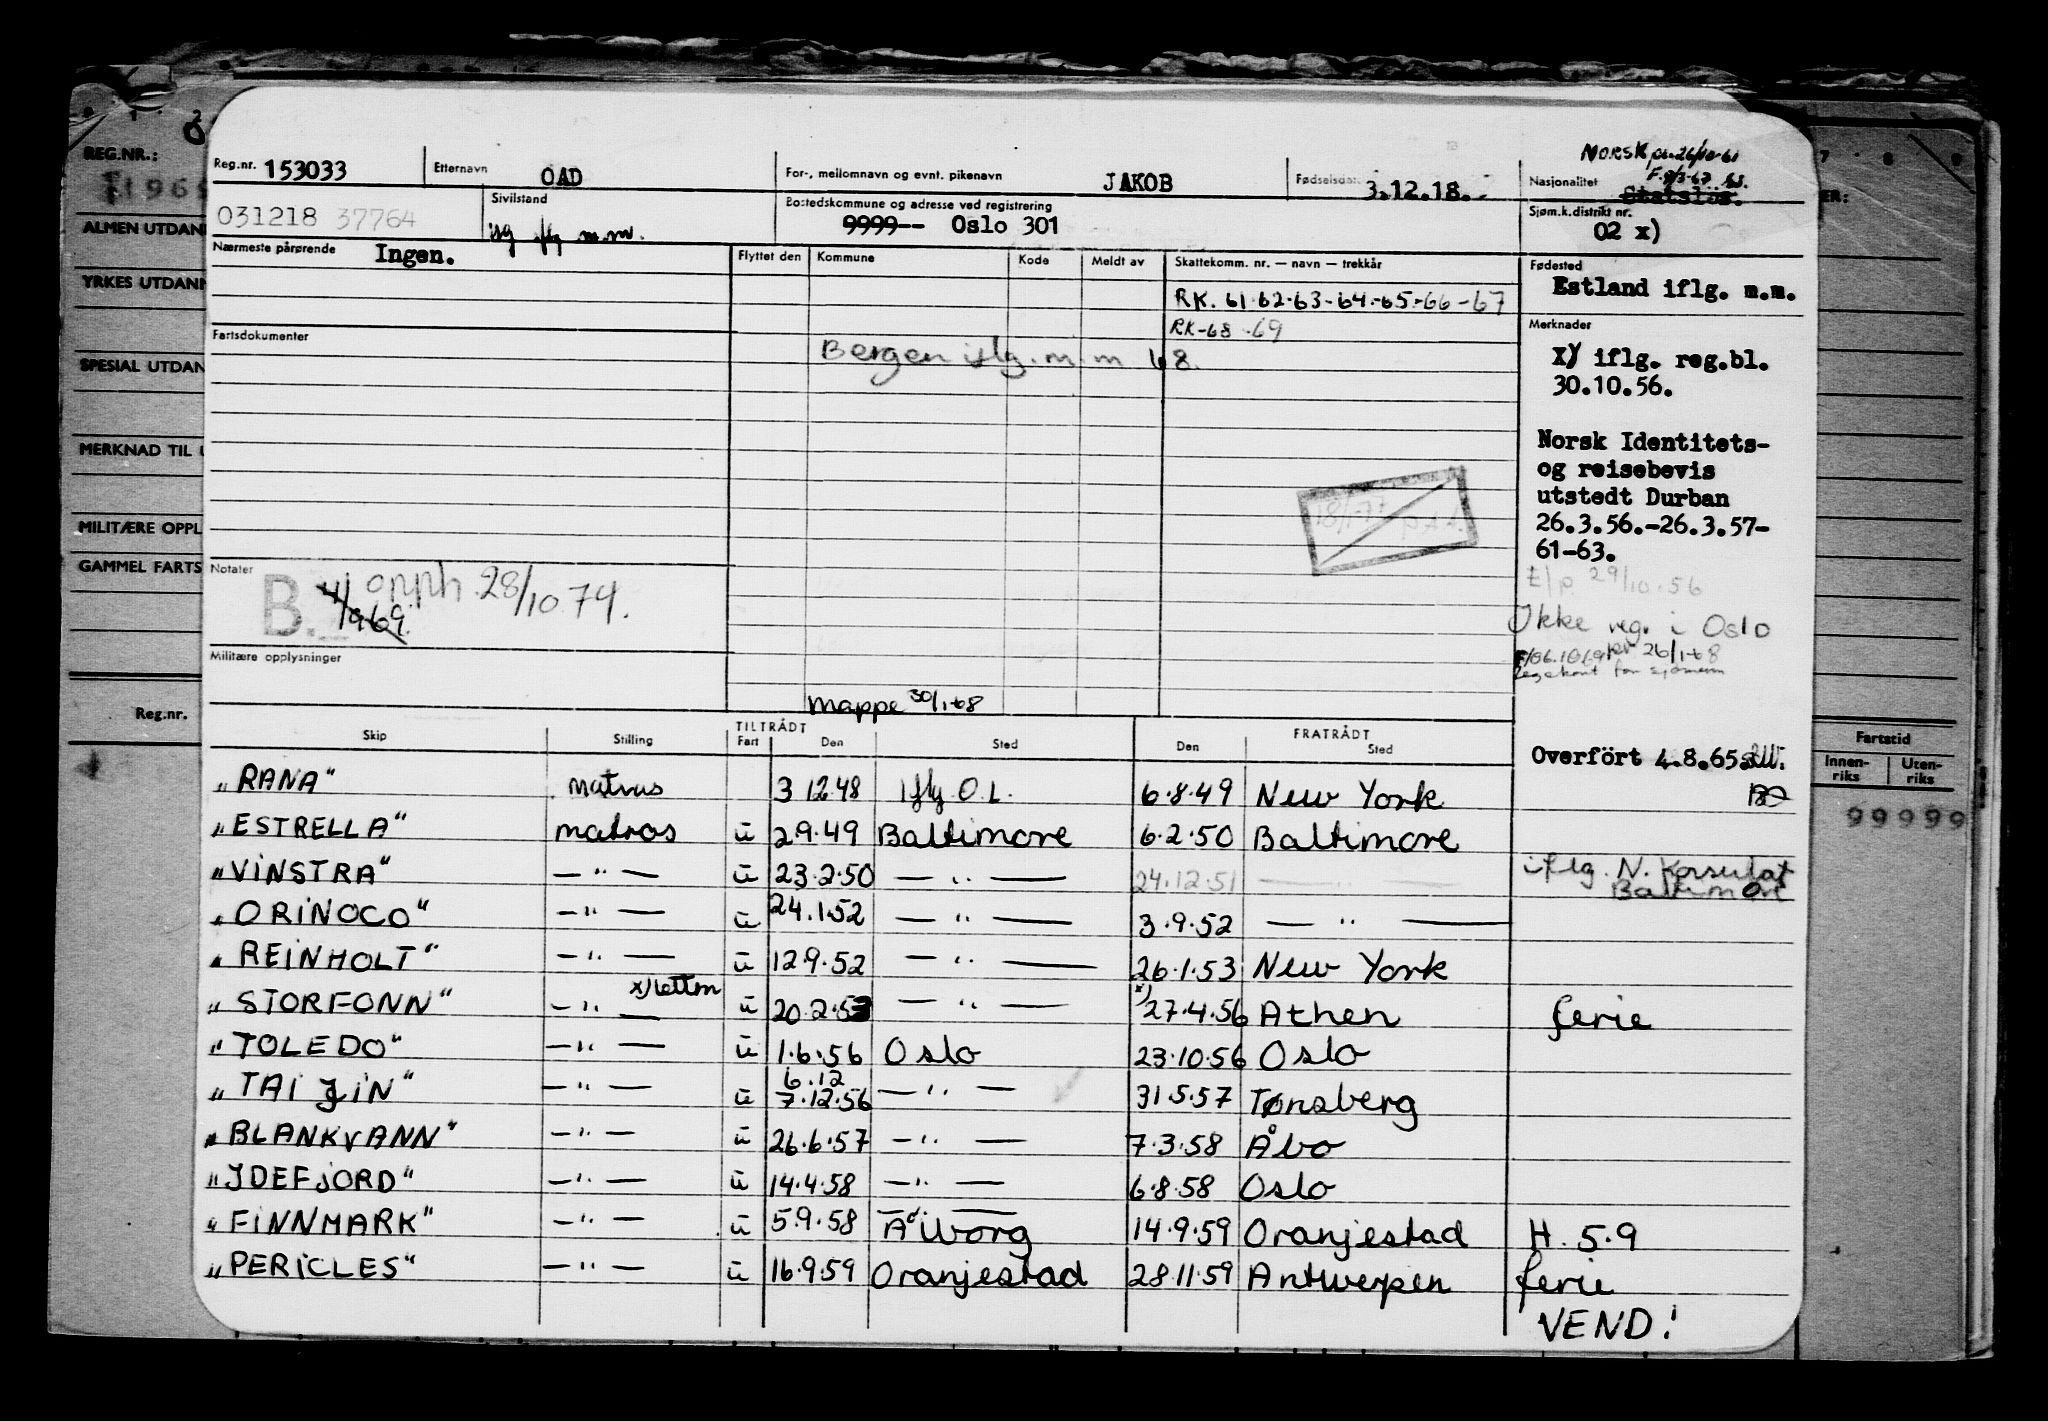 REG.NR.:
ALMEN UTDAN
YRKES UTDANN
SPESIAL UTDAN
MERKNAD TIL U
MILITÆRE OPPL
GAMMEL FARTS
Reg.nr.
Reg.nr. 153033 Etternavn OAD For-, mellomnavn og evnt. pikenavn JAKOB Fødselsdato 3.12.18. Nasjonalitet Statsløs.
NORSK
031218 37764 Sivilstand Bostedskommune og adresse ved registrering 9999-- Oslo 301 Sjøm.k.distrikt nr. 02 x)
Nærmeste pårørende Ingen. Flyttet den Kommune Kode Meldt av Skattekomm. nr. — navn — trekkår Fødested Estland iflg. m.m.
RK. 61-62-63-64-65-66-67
RK-68-69
Fartsdokumenter
Bergen iflg. m.m 68.
Merknader
x) iflg. reg.bl.
30.10.56.
Norsk Identitets-
og reisebevis
utstedt Durban
26.3.56.-26.3.57-
61-63.
29/10.56
Ikke reg. i Oslo
26/1-68
Notater B. opph. 28/10 74.
1969.
Militære opplysninger
Mappe 30/1-68
Skip Stilling TILTRÅDT Fart Den Sted FRATRÅDT Den Sted
Overfört 4.8.65.
Fartstid
Innen-riks Uten-riks
99999
"RANA" matros 3 12 48 Iflg O.L. 6.8.49 New York
"ESTRELLA" matros u 2.9.49 Baltimore 6.2.50 Baltimore
"VINSTRA" — " — u 23.2.50 — " — 24.12.51 — " — iflg. N. Konsulat
Baltimore
"ORINOCO" — " — u 24.1.52 — " — 3.9.52 — " —
"REINHOLT" — " — u 12.9.52 — " — 26.1.53 New York
"STORFONN" — " — u 20.2.53 — " — x) 27.4.56 Athen ferie
"TOLEDO" — " — u 1.6.56 Oslo 23.10.56 Oslo
6.12
"TAI YIN" — " — u 7.12.56 — " — 31.5.57 Tønsberg
"BLANKVANN" — " — u 26.6.57 — " — 7.3.58 Åbo
"IDEFJORD" — " — u 14.4.58 — " — 6.8.58 Oslo
"FINNMARK" — " — u 5.9.58 Ålborg 14.9.59 Oranjestad H. 5.9
"PERICLES" — " — u 16.9.59 Oranjestad 28.11.59 Antwerpen ferie
VEND!